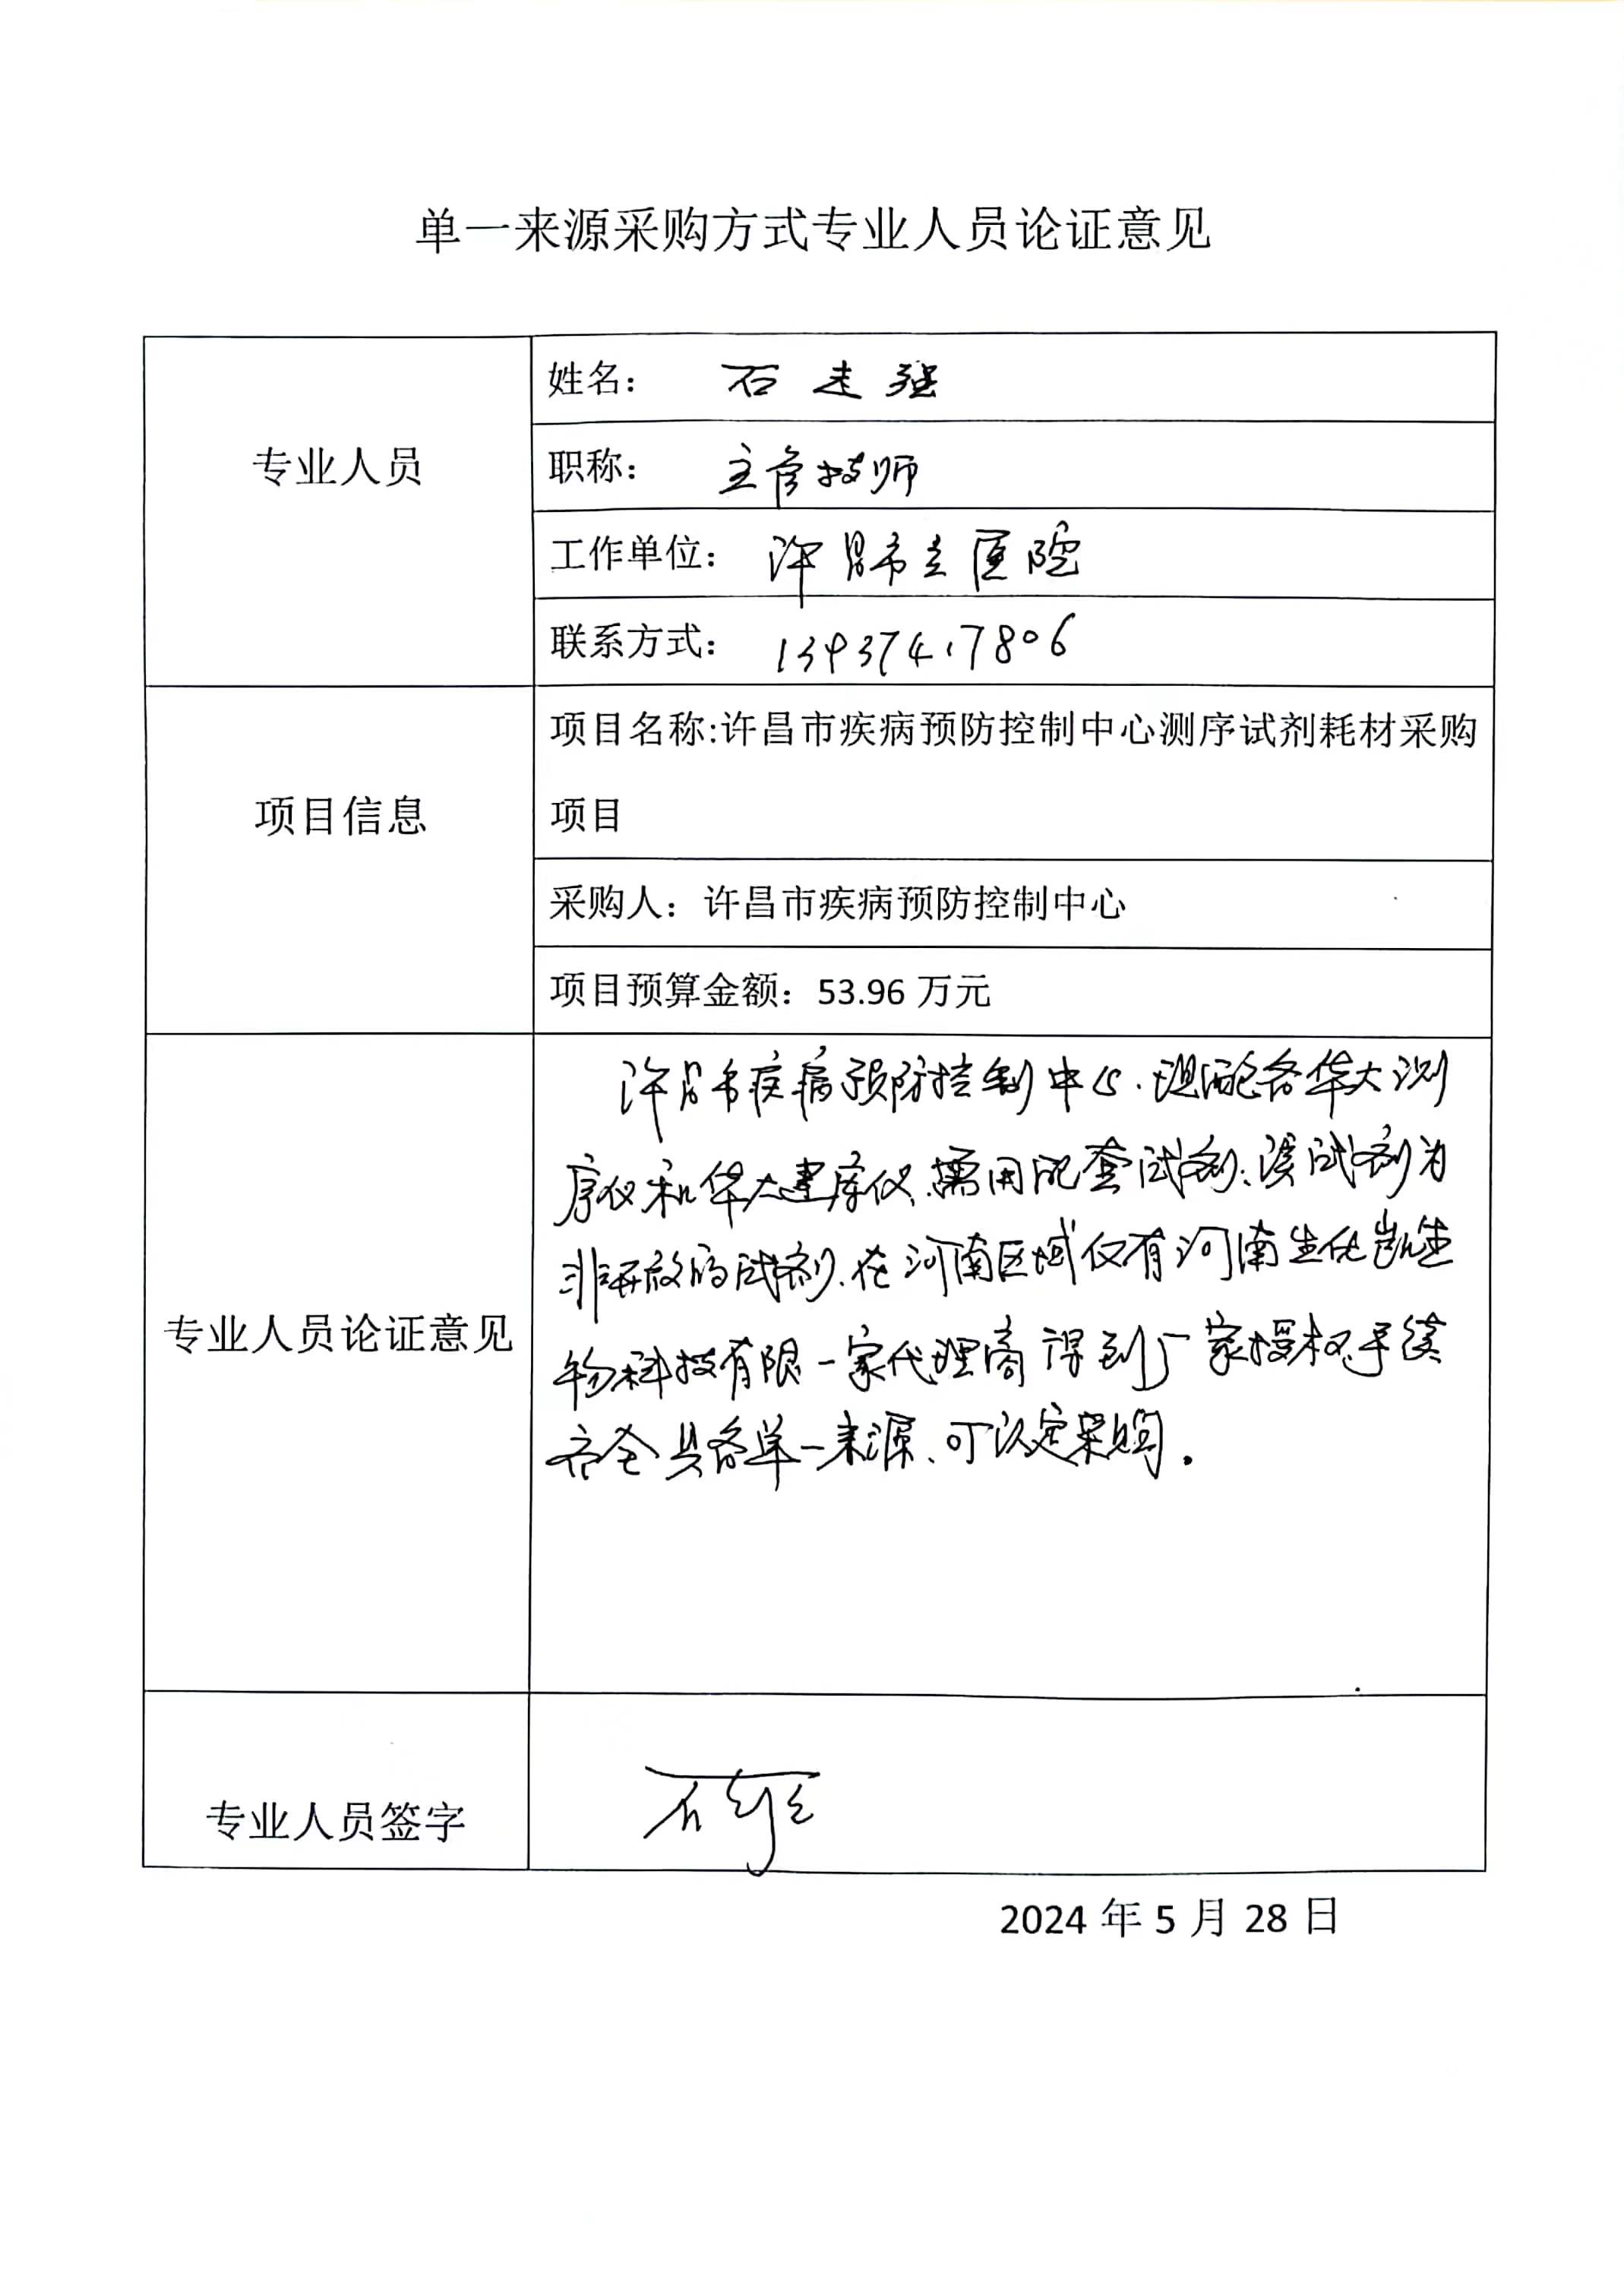 单一来源采购方式专业人员论证意见
专业人员
姓名： 石建强
职称： 主管技师
工作单位： 许昌市立医院
联系方式： 13937417806
项目信息
项目名称:许昌市疾病预防控制中心测序试剂耗材采购
项目
采购人：许昌市疾病预防控制中心
项目预算金额：53.96 万元
专业人员论证意见
许昌市疾病预防控制中心、现配备华大测
序仪和华大建库仪、需用配套试剂；该试剂为
非开放的试剂、在河南区域仅有河南生化凯生
物科技有限一家代理商 得到厂家授权、手续
齐全 具备单一来源、可认定采购。
专业人员签字
石
2024 年 5 月 28 日